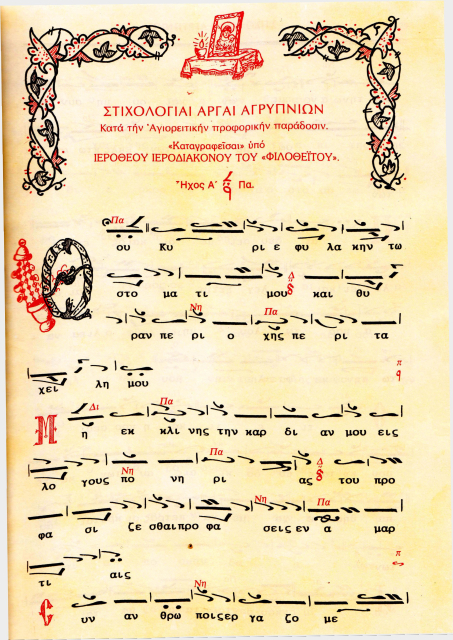 ΣΤΙΧΟΛΟΓΙΑΙ ΑΡΓΑΙ ΑΓΡΥΠΝΙΩΝ
Κατά τήν Ἁγιορειτικήν προφορικήν παράδοσιν.
«Καταγραφεῖσαι» ὑπό
ΙΕΡΟΘΕΟΥ ΙΕΡΟΔΙΑΚΟΝΟΥ ΤΟΥ «ΦΙΛΟΘΕΪΤΟΥ».
Ἦχος Α΄ Πα.
Πα
Θ ου Κυ ρι ε φυ λα κην τω
Δ
στο μα τι μου και θυ
Νη Πα
ραν πε ρι ο χης πε ρι τα
π
χει λη μου
Δι Πα
Μ η εκ κλι νης την καρ δι αν μου εις
Νη Πα Δ
λο γους πο νη ρι ας του προ
Νη Πα
φα σι ζε σθαι προ φα σεις εν α μαρ
π
τι αις
Νη
Σ υν αν θρω ποις ερ γα ζο με